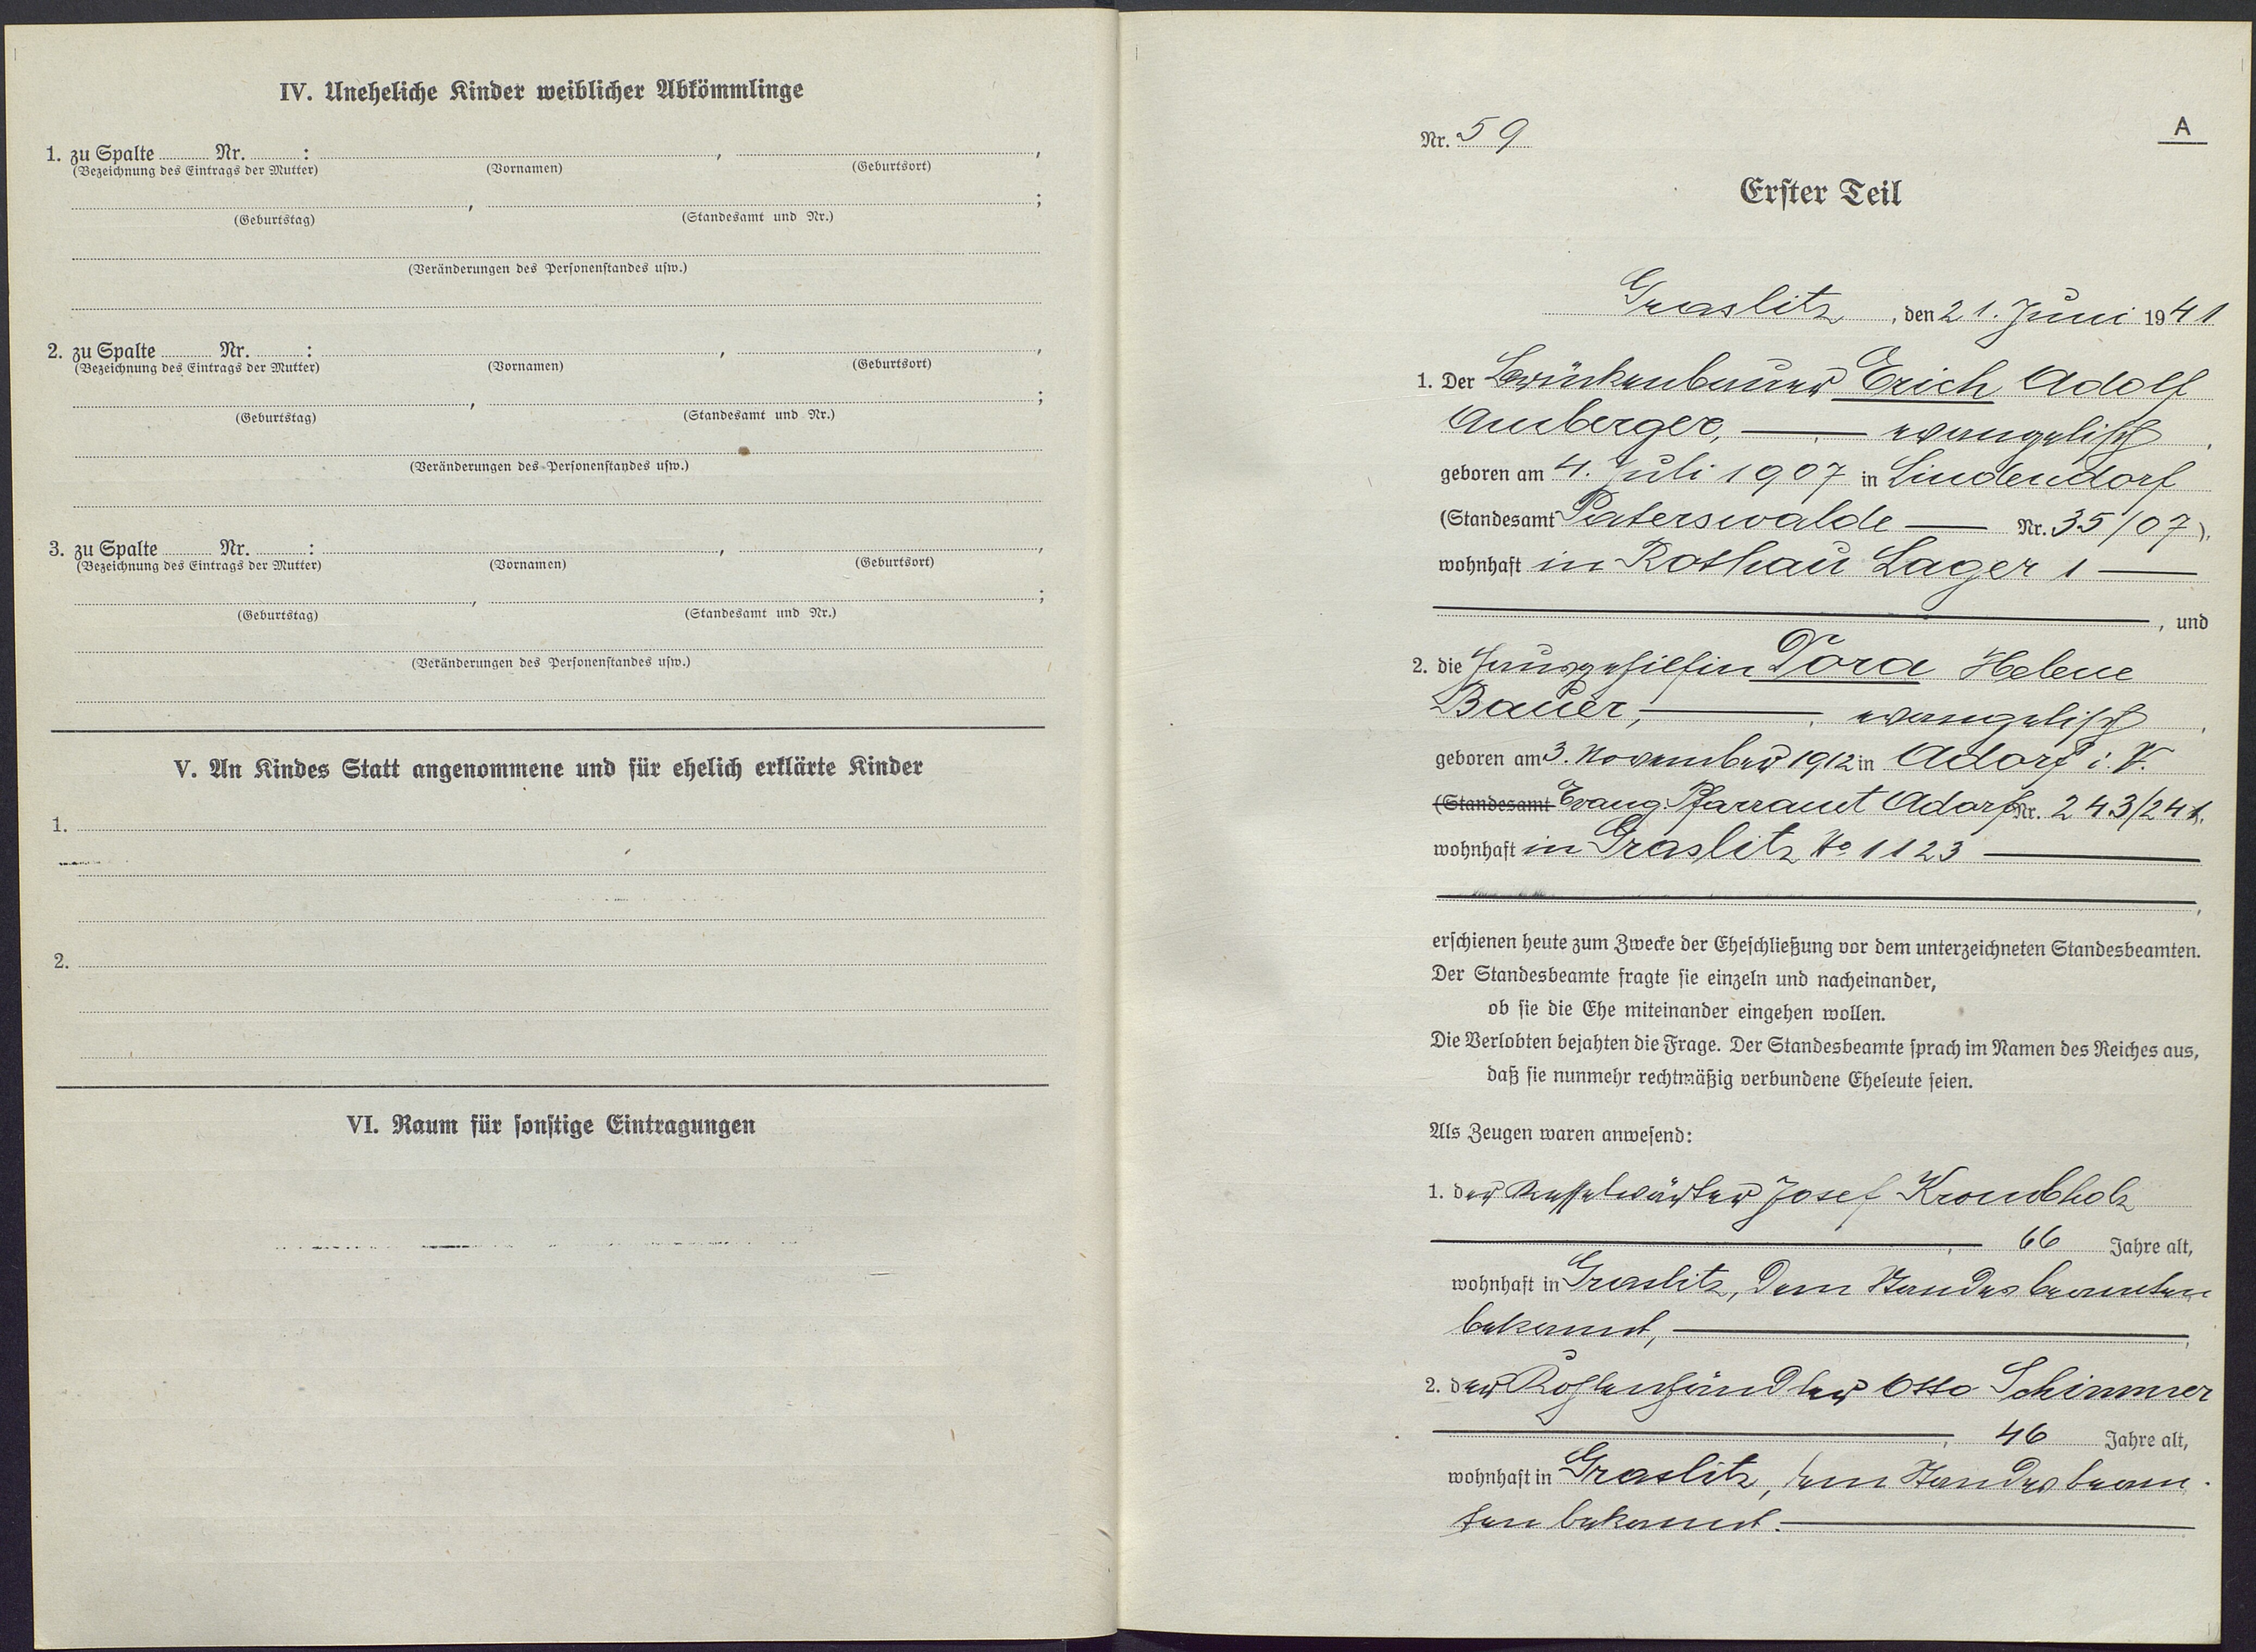 IV. Uneheliche Kinder weiblicher Abkömmlinge
1. zu Spalte Nr. : , ,
(Bezeichnung des Eintrags der Mutter) (Vornamen) (Geburtsort)
, ;
(Geburtstag) (Standesamt und Nr.)
(Veränderungen des Personenstandes usw.)
2. zu Spalte Nr. : , ,
(Bezeichnung des Eintrags der Mutter) (Vornamen) (Geburtsort)
, ;
(Geburtstag) (Standesamt und Nr.)
(Veränderungen des Personenstandes usw.)
3. zu Spalte Nr. : , ,
(Bezeichnung des Eintrags der Mutter) (Vornamen) (Geburtsort)
, ;
(Geburtstag) (Standesamt und Nr.)
(Veränderungen des Personenstandes usw.)
V. An Kindes Statt angenommene und für ehelich erklärte Kinder
1.
2.
VI. Raum für sonstige Eintragungen
Nr. 59 A
Erster Teil
Graslitz, den 21. Juni 1941
1. Der Erich Adolf
Amberger, — evangelisch,
geboren am 4. Juli 1907 in Lindendorf
(Standesamt Paterswalde — Nr. 35/07),
wohnhaft in Rothau Lager 1 —
—, und
2. die Hausgehilfin Dora Helene
Bauer, — evangelisch,
geboren am 3. November 1912 in Adorf i. V.
(Standesamt Evang. Pfarramt Adorf Nr. 243/241),
wohnhaft in Graslitz No 1123 —
—,
erschienen heute zum Zwecke der Eheschließung vor dem unterzeichneten Standesbeamten.
Der Standesbeamte fragte sie einzeln und nacheinander,
ob sie die Ehe miteinander eingehen wollen.
Die Verlobten bejahten die Frage. Der Standesbeamte sprach im Namen des Reiches aus,
daß sie nunmehr rechtmäßig verbundene Eheleute seien.
Als Zeugen waren anwesend:
1. der Kesselwärter Josef Krombholz
—, 66 Jahre alt,
wohnhaft in Graslitz, dem Standesbeamten
bekannt, —,
2. der Kohlenhändler Otto Schimmer
—, 46 Jahre alt,
wohnhaft in Graslitz, dem Standesbeam-
ten bekannt. —